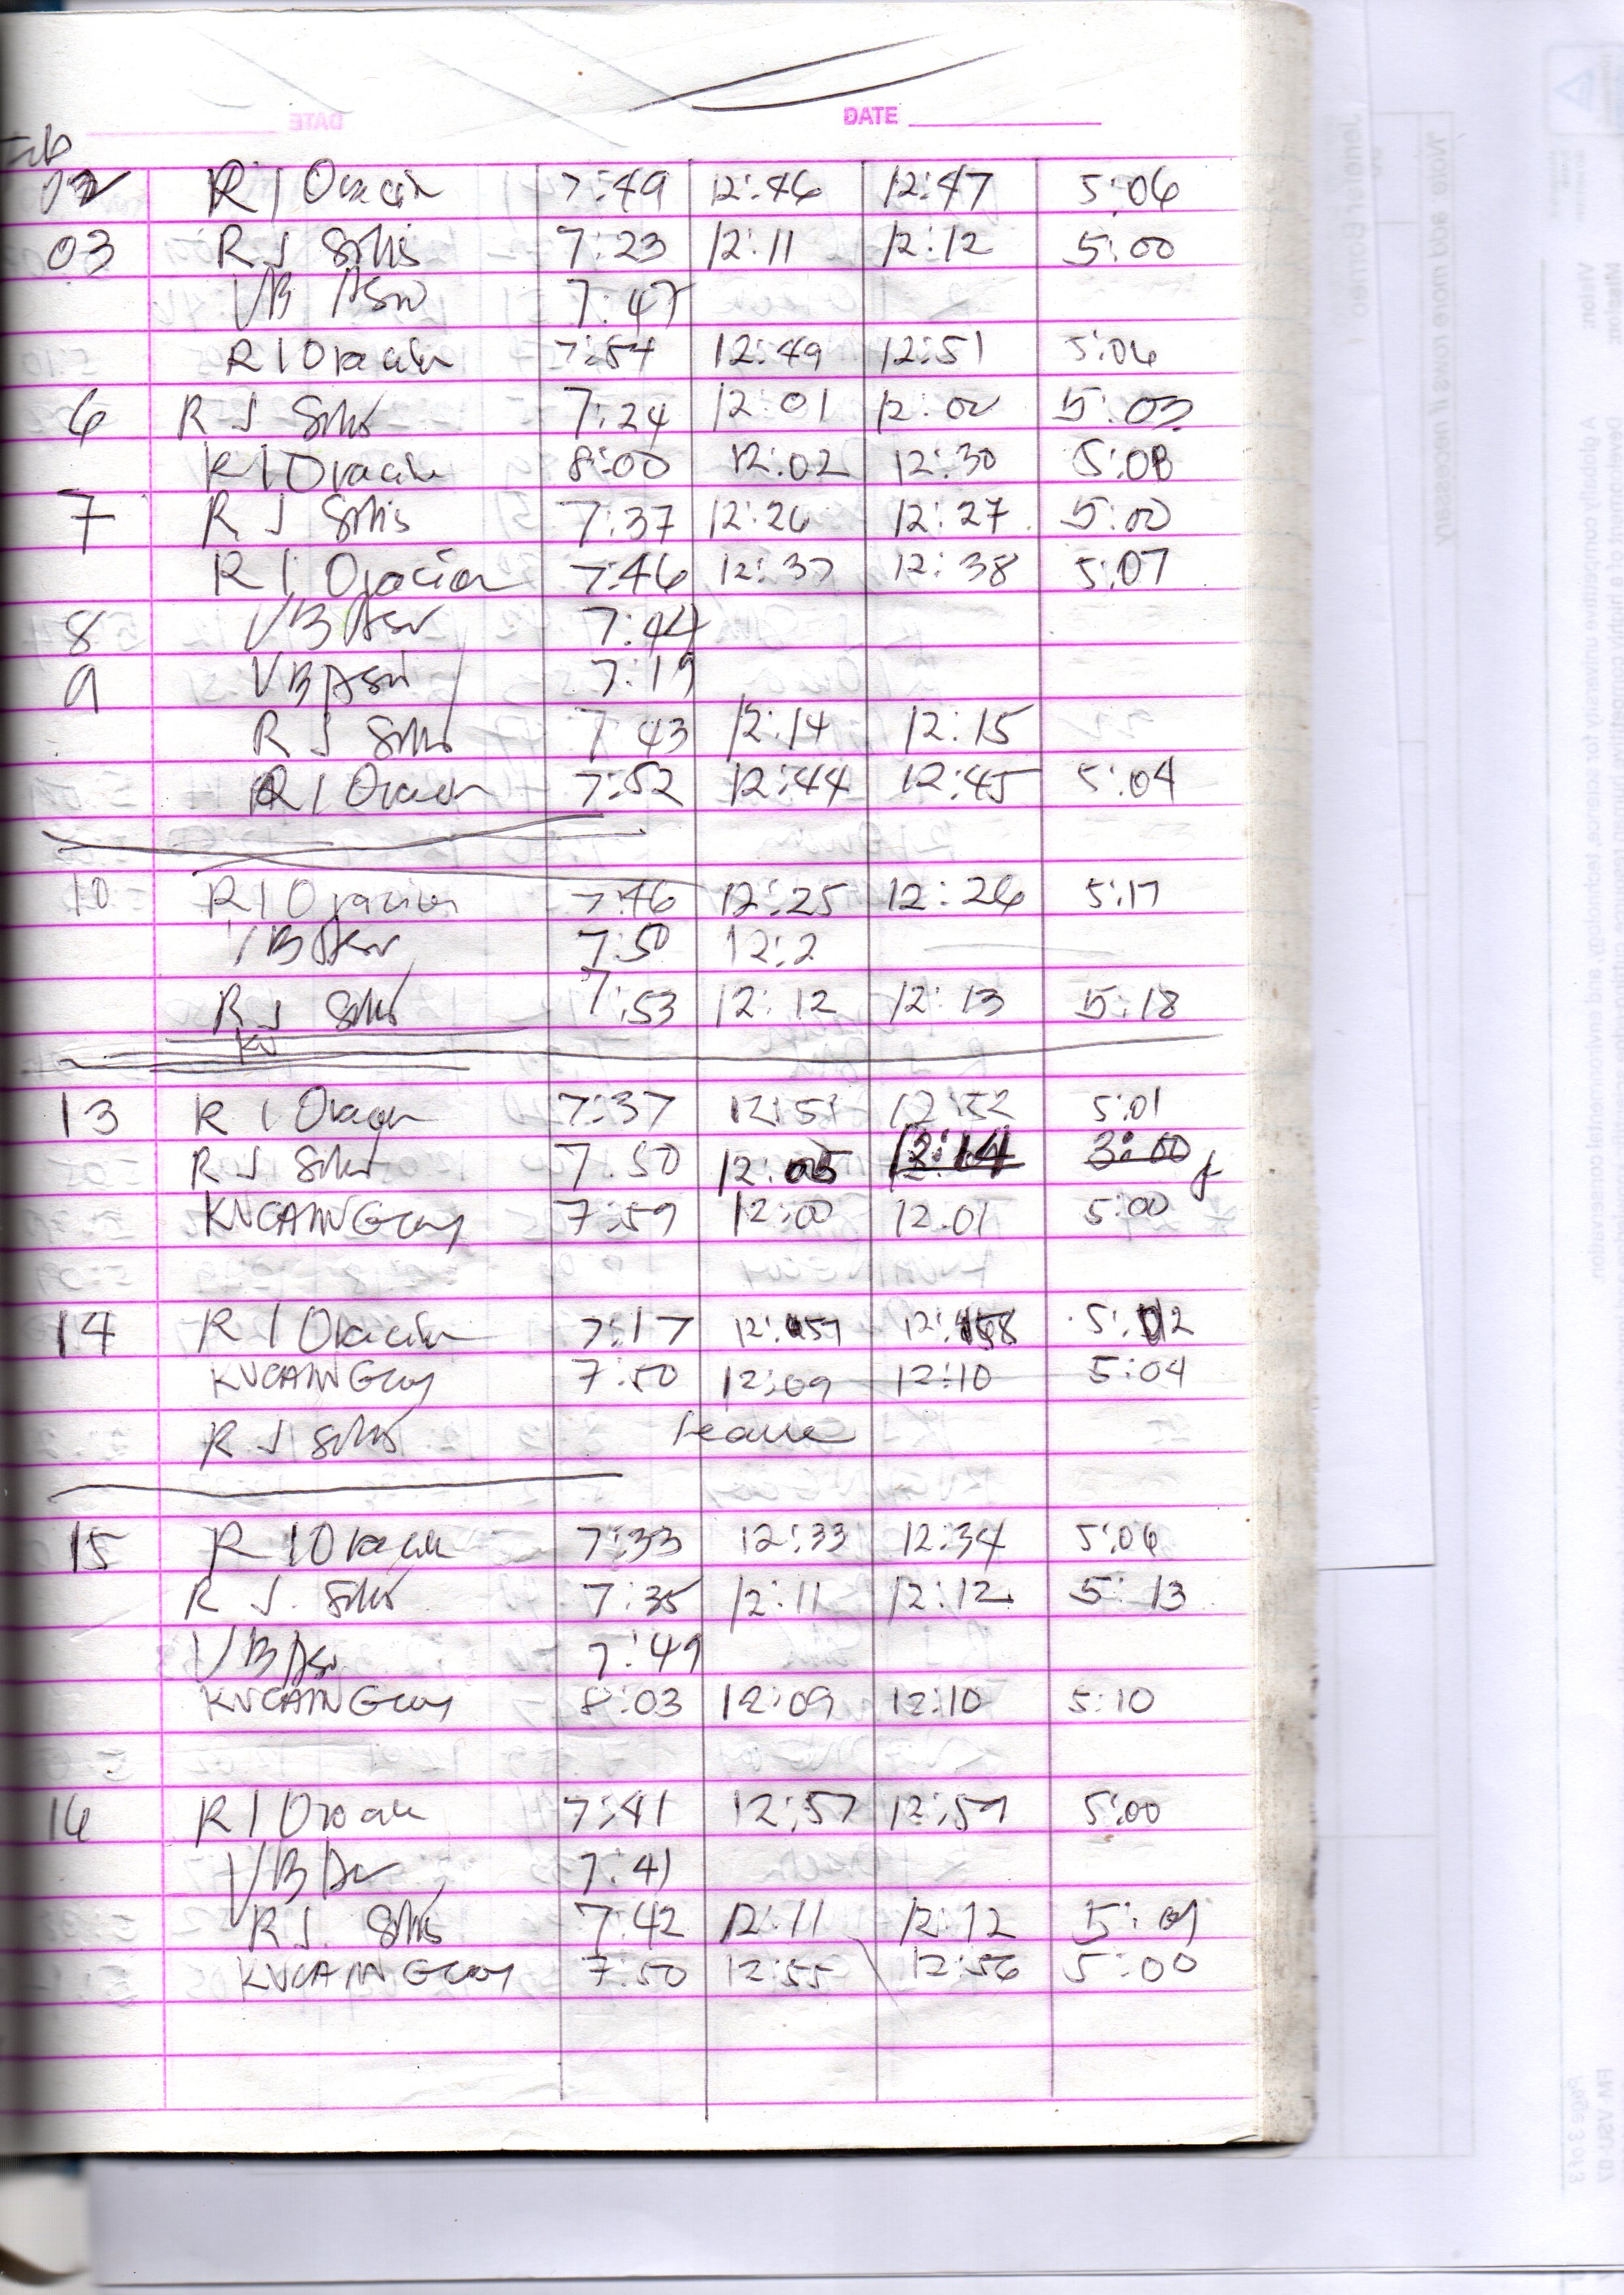 DATE
Feb
02 R I Oracion 7:49 12:46 12:47 5:06
03 R J Solis 7:23 12:11 12:12 5:00
VB Asio 7:47
R I Oracion 7:54 12:49 12:51 5:06
6 R J Solis 7:24 12:01 12:02 5:03
R I Oracion 8:00 12:02 12:30 5:08
7 R J Solis 7:37 12:26 12:27 5:00
R I Oracion 7:46 12:37 12:38 5:07
8 VB Asio 7:44
9 VB Asio 7:19
R J Solis 7:43 12:14 12:15
R I Oracion 7:52 12:44 12:45 5:04
10 R I Oracion 7:46 12:25 12:26 5:17
VB Asio 7:50 12:2
R J Solis 7:53 12:12 12:13 5:18
KV
13 R I Oracion 7:37 12:51 12:52 5:01
R J Solis 7:50 12:05 12:14 3:00
KVCAINGCOY 7:59 12:00 12:01 5:00
14 R I Oracion 7:17 12:57 12:58 5:02
KVCAINGCOY 7:50 12:09 12:10 5:04
R J Solis leave
15 R I Oracion 7:33 12:33 12:34 5:06
R J. Solis 7:35 12:11 12:12 5:13
VB Asio 7:49
KVCAINGCOY 8:03 12:09 12:10 5:10
16 R I Oracion 7:41 12:57 12:59 5:00
VB Asio 7:41
R J. Solis 7:42 12:11 12:12 5:01
KVCAINGCOY 7:50 12:55 12:56 5:00